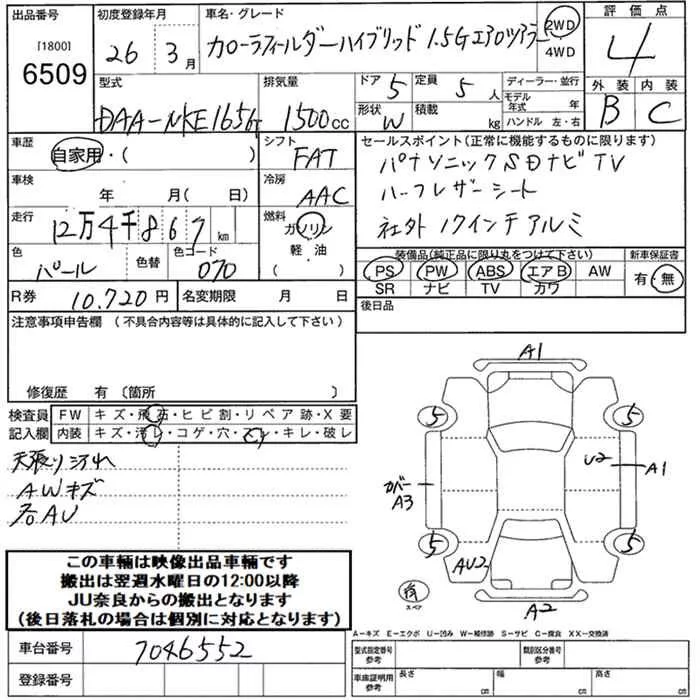 出品番号 初度登録年月 車名・グレード 評価点
[1800] 26年 3月 カローラフィールダーハイブリッド 1.5G エアロツアラー 2WD 4WD 4
6509 型式 排気量 ドア 5 定員 5人 ディーラー・並行 外装 内装
DAA-NKE165G 1500cc 形状 W 積載 kg モデル年式 年 B C
ハンドル 左・右
車歴 自家用・( ) シフト FAT セールスポイント(正常に機能するものに限ります)
車検 年 月( 日) 冷房 AAC パナソニックSDナビTV
走行 12万4千867km 燃料 ガソリン ハーフレザーシート
色 パール 色替 色コード 070 軽・油 社外17インチアルミ
( ) 装備品(純正品に限り丸をつけて下さい) 新車保証書
PS PW ABS エアB AW 有・無
R券 10.720円 名変期限 月 日 SR ナビ TV カワ
後日品
注意事項申告欄(不具合内容等は具体的に記入して下さい)
修復歴 有〔箇所 〕
検査員 FW キズ・飛石・ヒビ割・リペア跡・X要
記入欄 内装 キズ・汚レ・コゲ・穴・スレ・キレ・破レ
天張り汚れ
AWキズ
各AU
A1
5 5
U2 A1
カバー A3
5 5
AU2
スペア
A2
この車輌は映像出品車輌です
搬出は翌週水曜日の12:00以降
JU奈良からの搬出となります
(後日落札の場合は個別に対応となります)
A-キズ E-エクボ U-凹み W-補修跡 S-サビ C-腐食 XX-交換済
車台番号 7046552 型式指定番号 参考 類別区分番号 参考
登録番号 車庫証明用 参考 長さ cm 幅 cm 高さ cm